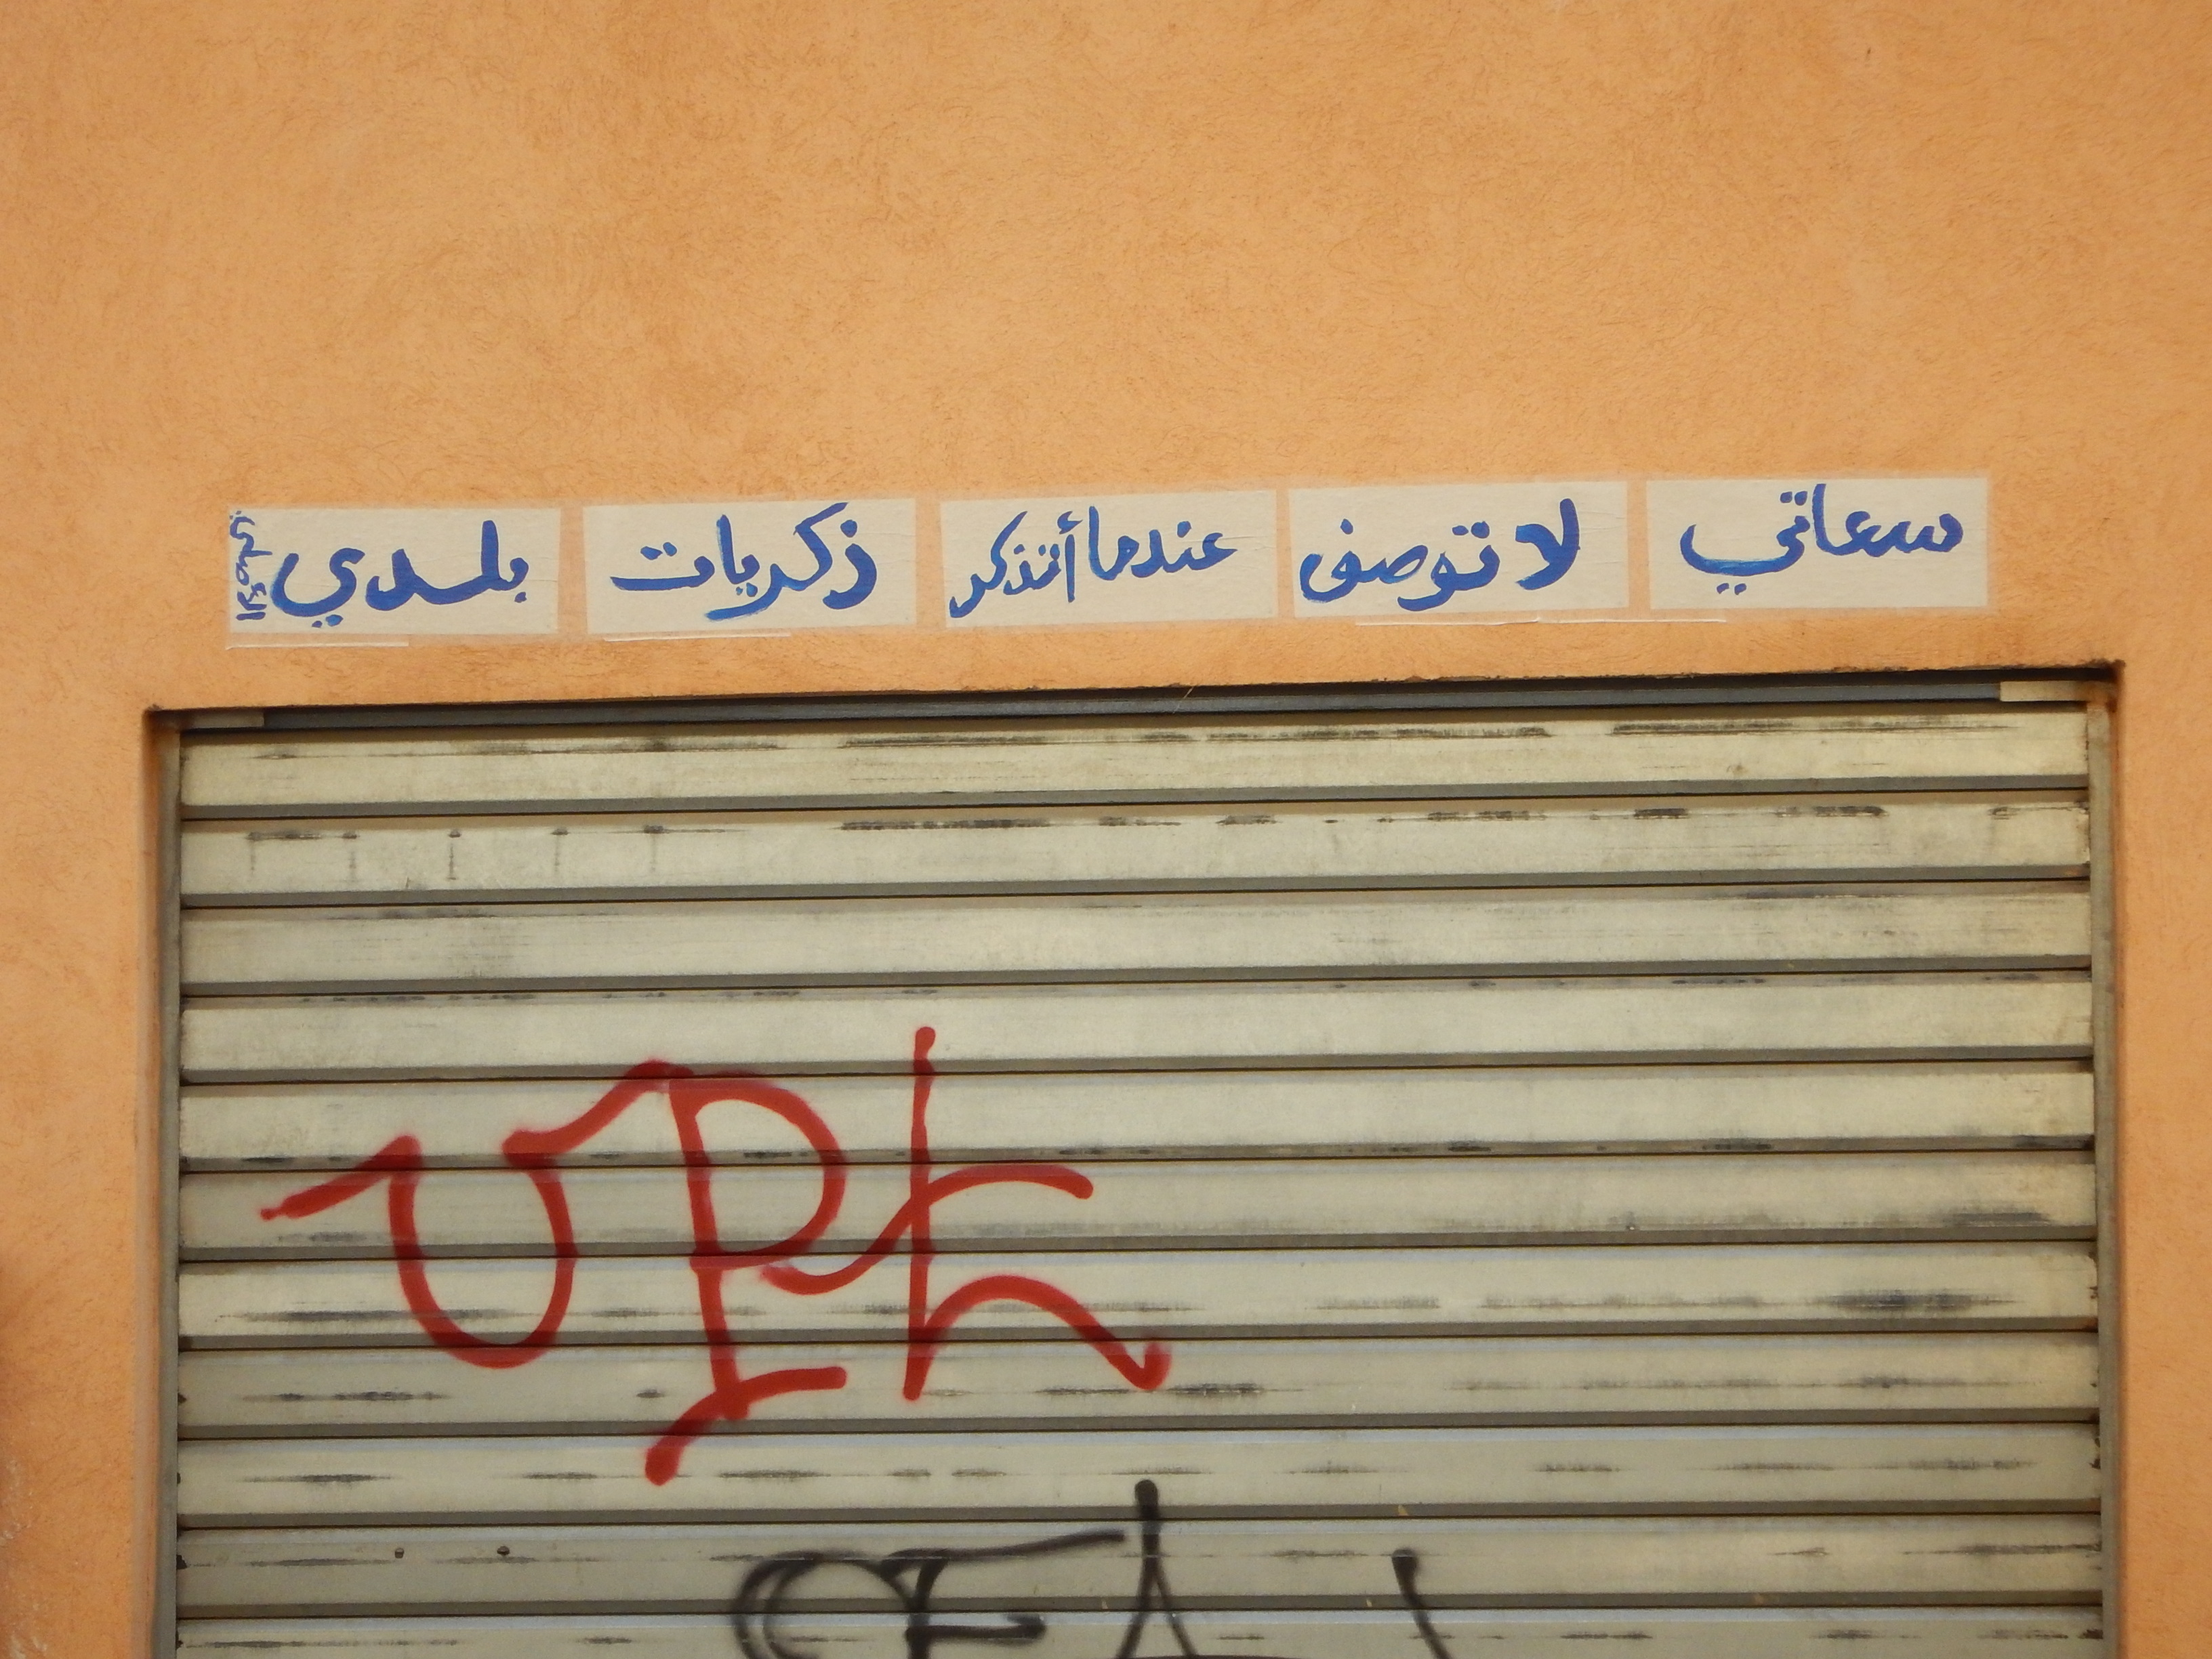 سعاتي لا توصف عندما أتذكر ذكريات بلدي
الأصلي
UPK